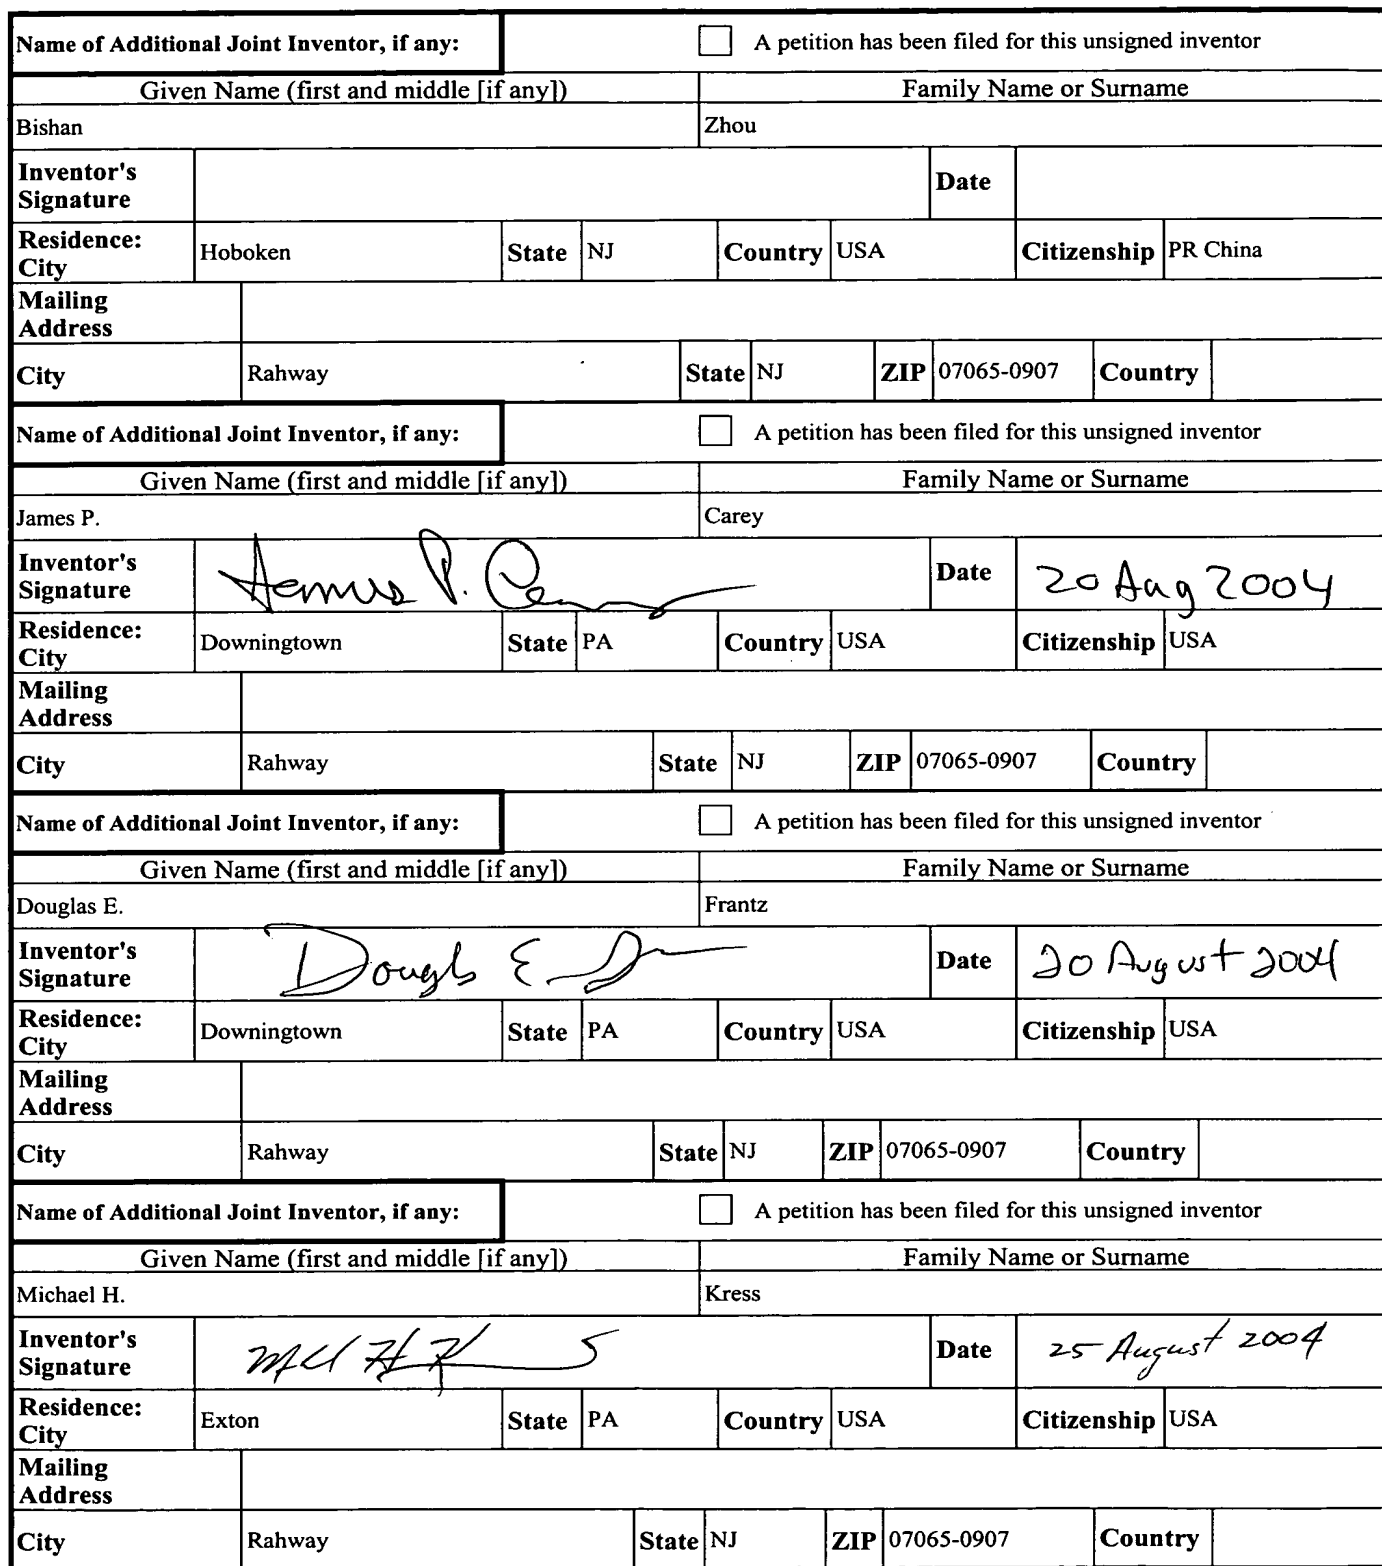 Name of Additional Joint Inventor, if any: A petition has been filed for this unsigned inventor
Given Name (first and middle [if any]) Family Name or Surname
Bishan Zhou
Inventor's Signature Date
Residence: City Hoboken State NJ Country USA Citizenship PR China
Mailing Address
City Rahway State NJ ZIP 07065-0907 Country
Name of Additional Joint Inventor, if any: A petition has been filed for this unsigned inventor
Given Name (first and middle [if any]) Family Name or Surname
James P. Carey
Inventor's Signature James P. Date 20 Aug 2004
Residence: City Downingtown State PA Country USA Citizenship USA
Mailing Address
City Rahway State NJ ZIP 07065-0907 Country
Name of Additional Joint Inventor, if any: A petition has been filed for this unsigned inventor
Given Name (first and middle [if any]) Family Name or Surname
Douglas E. Frantz
Inventor's Signature Douglas E. Date 20 August 2004
Residence: City Downingtown State PA Country USA Citizenship USA
Mailing Address
City Rahway State NJ ZIP 07065-0907 Country
Name of Additional Joint Inventor, if any: A petition has been filed for this unsigned inventor
Given Name (first and middle [if any]) Family Name or Surname
Michael H. Kress
Inventor's Signature Date 25 August 2004
Residence: City Exton State PA Country USA Citizenship USA
Mailing Address
City Rahway State NJ ZIP 07065-0907 Country